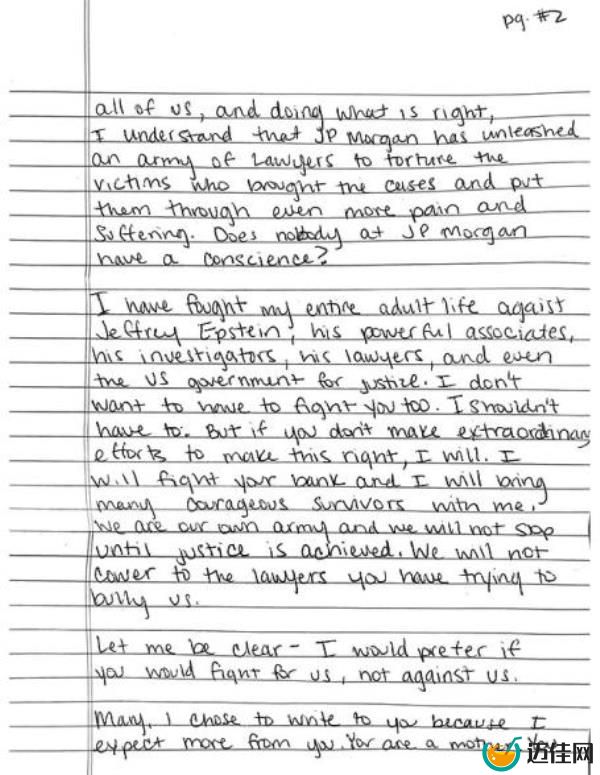 pg. #2
all of us, and doing what is right,
I understand that JP Morgan has unleashed
an army of Lawyers to torture the
victims who brought the cases and put
them through even more pain and
suffering. Does nobody at JP Morgan
have a conscience?
I have fought my entire adult life agaist
Jeffrey Epstein, his powerful associates,
his investigators, his lawyers, and even
the US government for justice. I don't
want to have to fight you too. I shouldn't
have to. But if you don't make extraordinary
efforts to make this right, I will. I
will fight your bank and I will bring
many courageous survivors with me.
We are our own army and we will not stop
until justice is achieved. We will not
cower to the lawyers you have trying to
bully us.
Let me be clear - I would prefer if
you would fight for us, not against us.
Mary, I chose to write to you because I
expect more from you. You are a mother. You
迈佳网